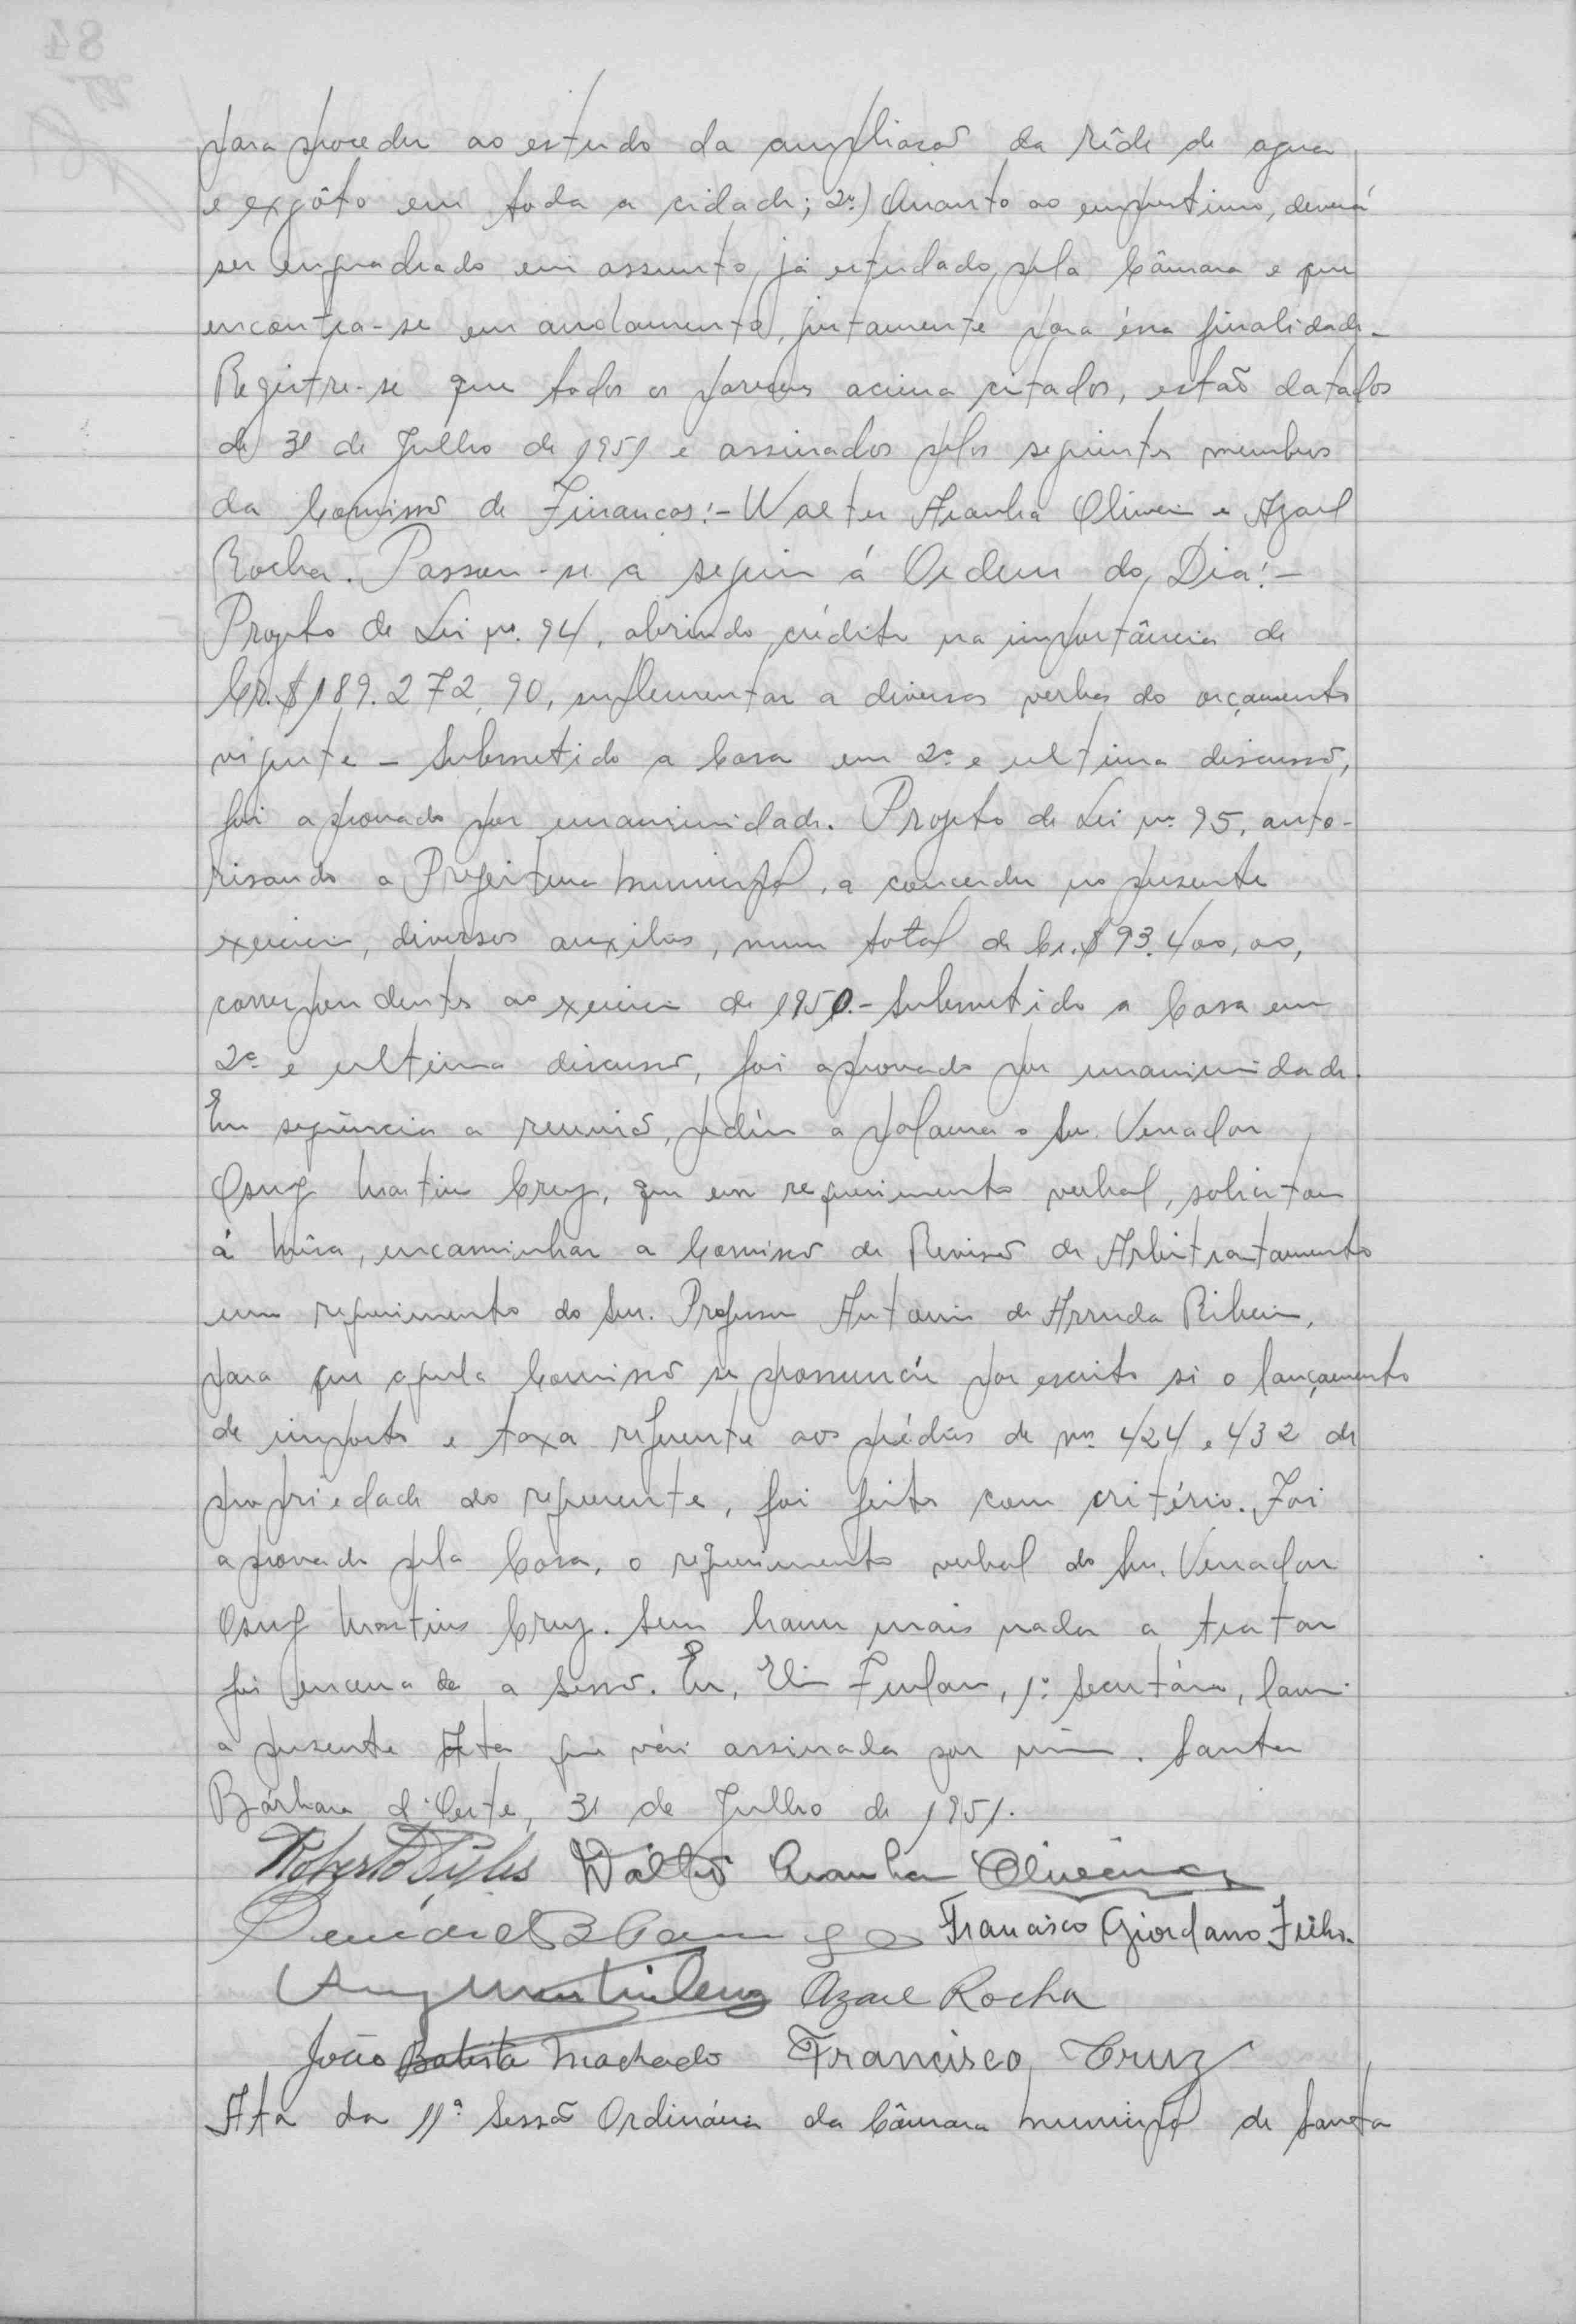 para proceder ao estudo da ampliação da rêde de agua
e exgôto em toda a cidade; 2º) Quanto ao emprestimo, deverá
ser enquadrado em assunto, já estudado, pela Câmara e que
encontra-se em andamento, justamente para éssa finalidade.
Registre-se que todos os pareceres acima citados, estão datados
de 31 de Julho de 1951 e assinados pelos seguintes membros
da Comissão de Finanças:- Walter Aranha Oliveira e Azael
Rocha. Passou-se a seguir á Ordem do Dia:-
Projeto de Lei nº. 94, abrindo crédito na importância de
Cr.$189.272,90, suplementar a diversas verbas do orçamento
vigente - Submetido a Casa em 2ª e ultima discussão,
foi aprovado por unanimidade. Projeto de Lei nº 95, auto-
risando a Prefeitura Municipal, a conceder no presente
exercicio, diversos auxilios, num total de Cr.$93.400,00,
correspondentes ao exercicio de 1950.- Submetido a Casa em
2ª e ultima discussão, foi aprovado por unanimidade.
Em seqüencia a reunião, pediu a palavra o Snr. Vereador
Osny Martins Cruz, que em requerimento verbal, solicitou
á Mêsa, encaminhar a Comissão de Revisão de Arbitratamento
um requerimento do Snr. Professor Antonio de Arruda Ribeiro,
para que aquela Comissão se pronuncie por escrito si o lançamento
de imposto e taxa referente aos prédios de nº 424 e 432 de
propriedade do requerente, foi feito com critério. Foi
aprovado pela Casa, o requerimento verbal do Snr. Vereador
Osny Martins Cruz. Sem haver mais nada a tratar
foi encerrada a sessão. Eu, Furlan, 1º. Secretário, lavrei
a presente Ata que vai assinada por mim. Santa
Bárbara d'Oeste, 31 de Julho de 1951.
Roberto Walter Aranha Oliveira
Francisco Giordano Filho.
Osny Martins Cruz Azael Rocha
João Batista Machado Francisco Cruz
Ata da 11ª Sessão Ordinária da Câmara Municipal de Santa